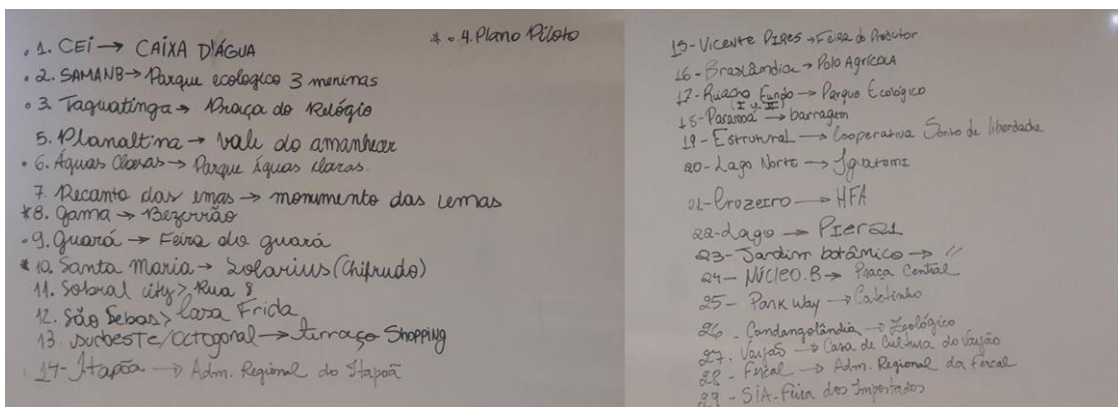 . 1. CEI → CAIXA D'ÁGUA
* . 4. Plano Piloto
. 2. SAMANB → Parque ecologico 3 meninas
. 3. Taguatinga → Praça do Relógio
5. Planaltina → vale do amanhecer
. 6. Águas Claras → Parque águas claras.
7. Recanto das emas → monumento das emas
*8. Gama → Bezerrão
. 9. Guará → Feira do guará
*10. Santa Maria → Solarius (Chifrudo)
11. Sobral city > Rua 8
12. São Sebas > Casa Frida
13. sudoeste/octogonal → terraço Shopping
14- Itapõa → Adm. Regional do Itapoã
15- Vicente Pires → Feira do Produtor
16- Braslândia → Polo Agrícola
17- Riacho Fundo → Parque Ecológico
(I e II)
18- Paranoá → barragem
19- Estrutural → Cooperativa Sonho de liberdade
20- Lago Norte → Iguatemi
21- Cruzeiro → HFA
22- Lago → Pier 21
23- Jardim botâmico → //
24- NÚCLEO.B → Praça Central
25- Park Way → Catetinho
26. Candangolândia → Zoológico
27. Varjão → Casa de Cultura do Varjão
28 - Fercal → Adm. Regional da Fercal
29 - SIA - Feira dos Importados